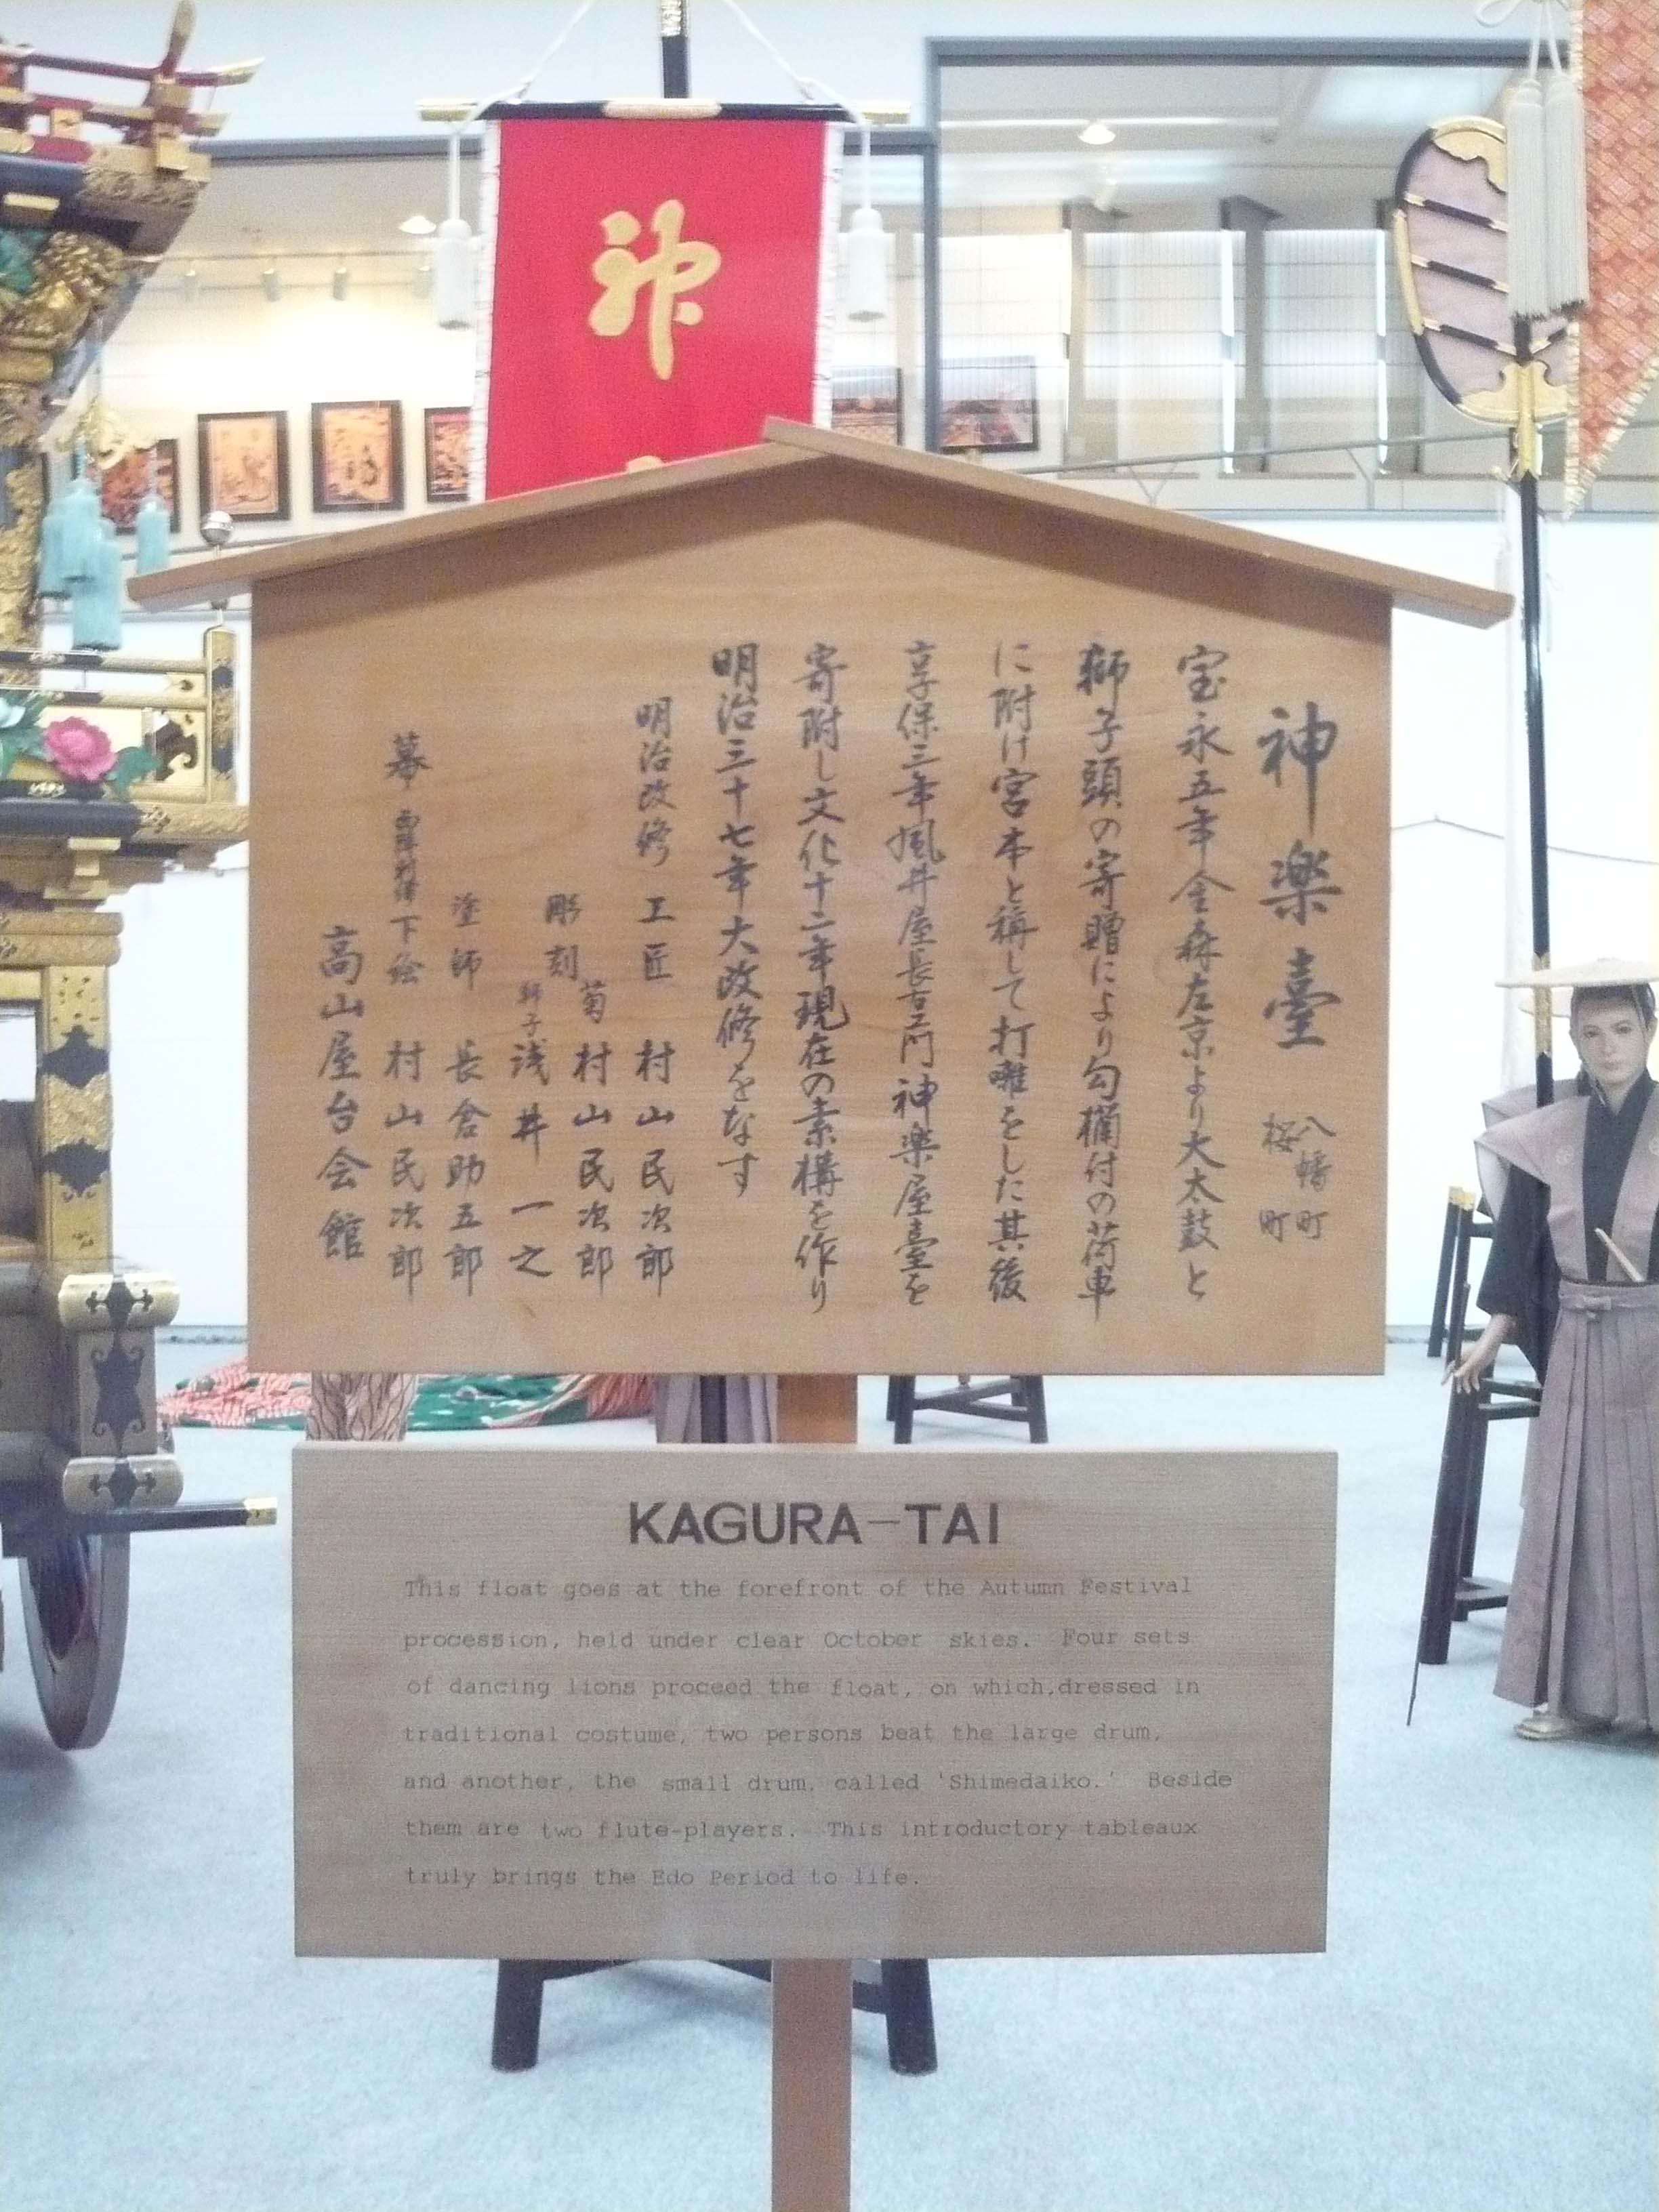 神
神楽臺 八幡町
桜町
宝永五年金森左京より大太鼓と
獅子頭の寄贈により勾欄付の荷車
に附け宮本と称して打囃をした其後
享保三年風井屋長右エ門神楽屋臺を
寄附し文化十二年現在の素構を作り
明治三十七年大改修をなす
明治改修 工匠 村山民次郎
彫刻 菊 村山民次郎
獅子 浅井一之
塗師 長倉助五郎
幕 下絵 村山民次郎
高山屋台会館
KAGURA-TAI
This float goes at the forefront of the Autumn Festival
procession, held under clear October skies. Four sets
of dancing lions proceed the float, on which,dressed in
traditional costume, two persons beat the large drum,
and another, the small drum, called 'Shimedaiko.' Beside
them are two flute-players. This introductory tableaux
truly brings the Edo Period to life.